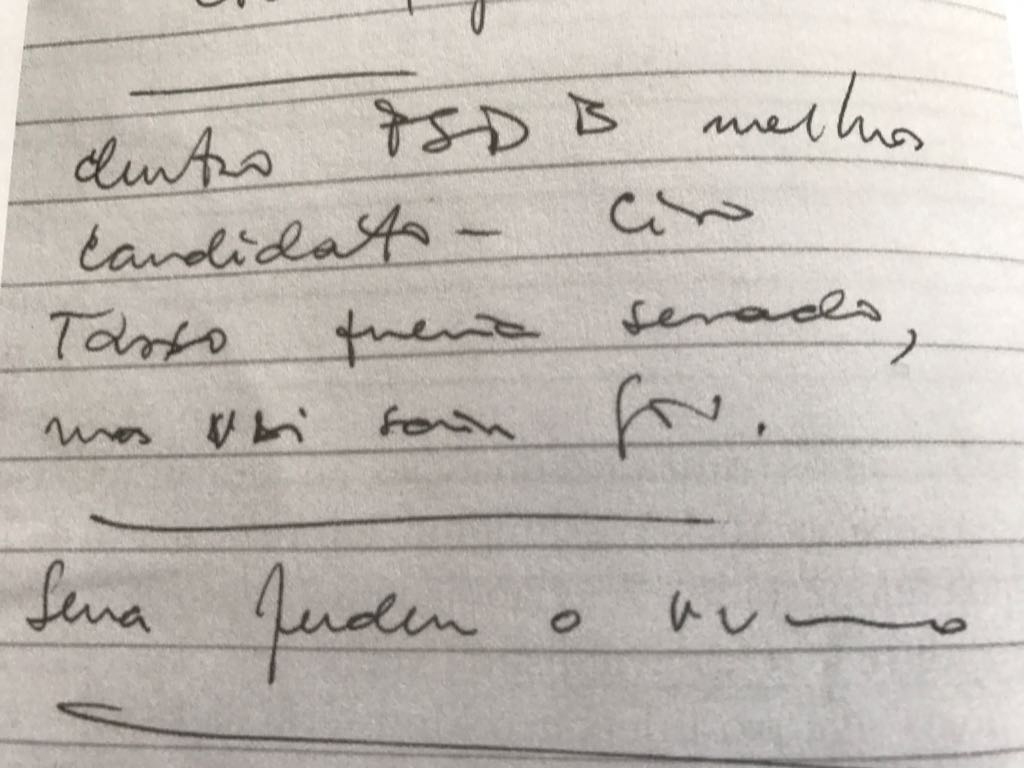 dentro PSDB melhor
candidato - Ciro
Tasso queria senado,
mas vai sair gov.
Serra perdeu o